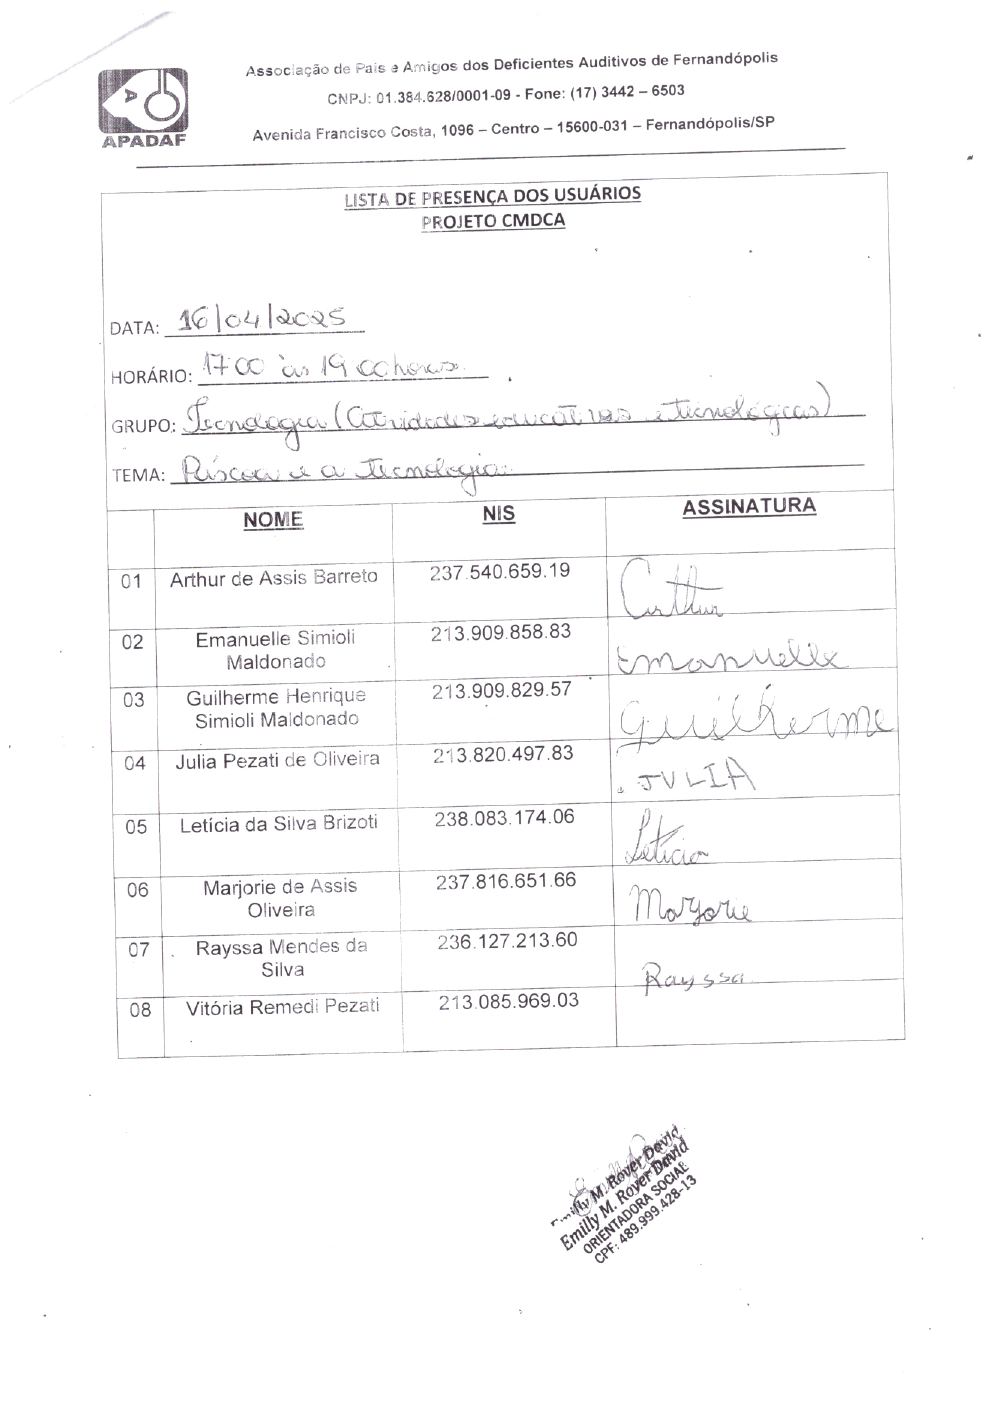 Associação de Pais e Amigos dos Deficientes Auditivos de Fernandópolis
CNPJ: 01.384.628/0001-09 - Fone: (17) 3442 – 6503
Avenida Francisco Costa, 1096 – Centro – 15600-031 – Fernandópolis/SP
APADAF
LISTA DE PRESENÇA DOS USUÁRIOS
PROJETO CMDCA
DATA: 16/04/2025
HORÁRIO: 17:00 às 19:00 horas.
GRUPO: Tecnologia (Atividades educativas e tecnológicas)
TEMA: Páscoa e a tecnologia.
NOME NIS ASSINATURA
01 Arthur de Assis Barreto 237.540.659.19 Arthur
02 Emanuelle Simioli Maldonado 213.909.858.83 Emanuelle
03 Guilherme Henrique Simioli Maldonado 213.909.829.57 Guilherme
04 Julia Pezati de Oliveira 213.820.497.83 JULIA
05 Letícia da Silva Brizoti 238.083.174.06 Letícia
06 Marjorie de Assis Oliveira 237.816.651.66 Marjorie
07 Rayssa Mendes da Silva 236.127.213.60 Rayssa
08 Vitória Remedi Pezati 213.085.969.03
Emilly M. Rover David
Emilly M. Rover David
ORIENTADORA SOCIAL
CPF: 489.999.428-13